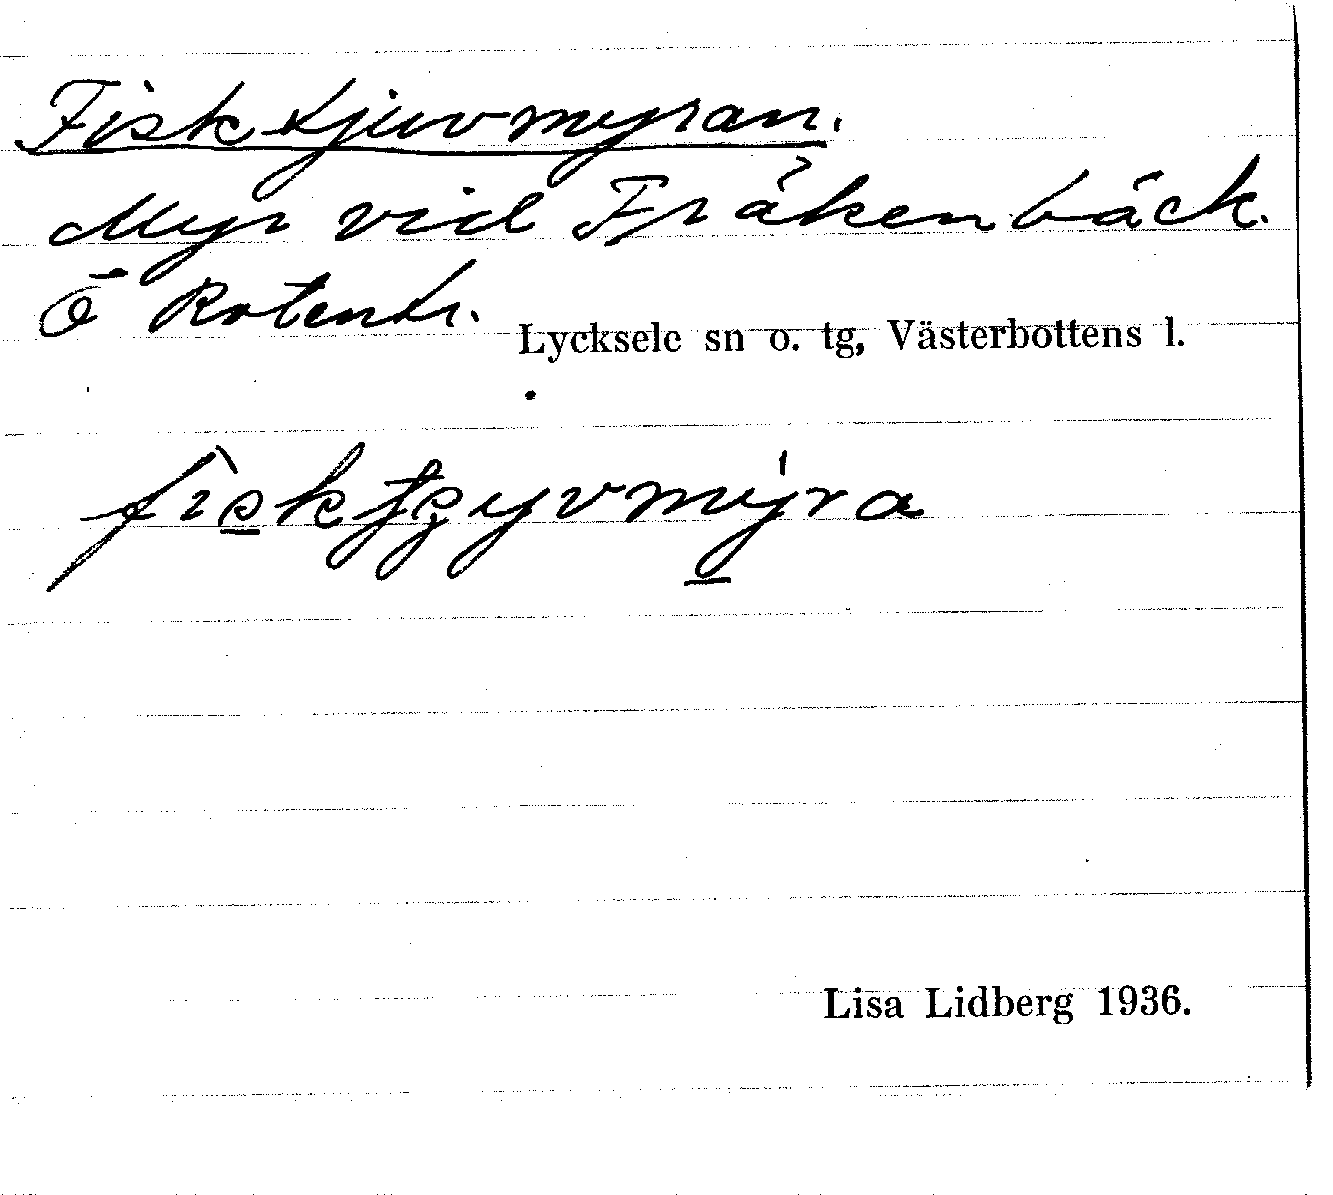 Fisktjuvmyran.
Myr vid Fräkenbäck.
Ö Rotentr.
Lycksele sn o. tg, Västerbottens l.
Lisa Lidberg 1936.